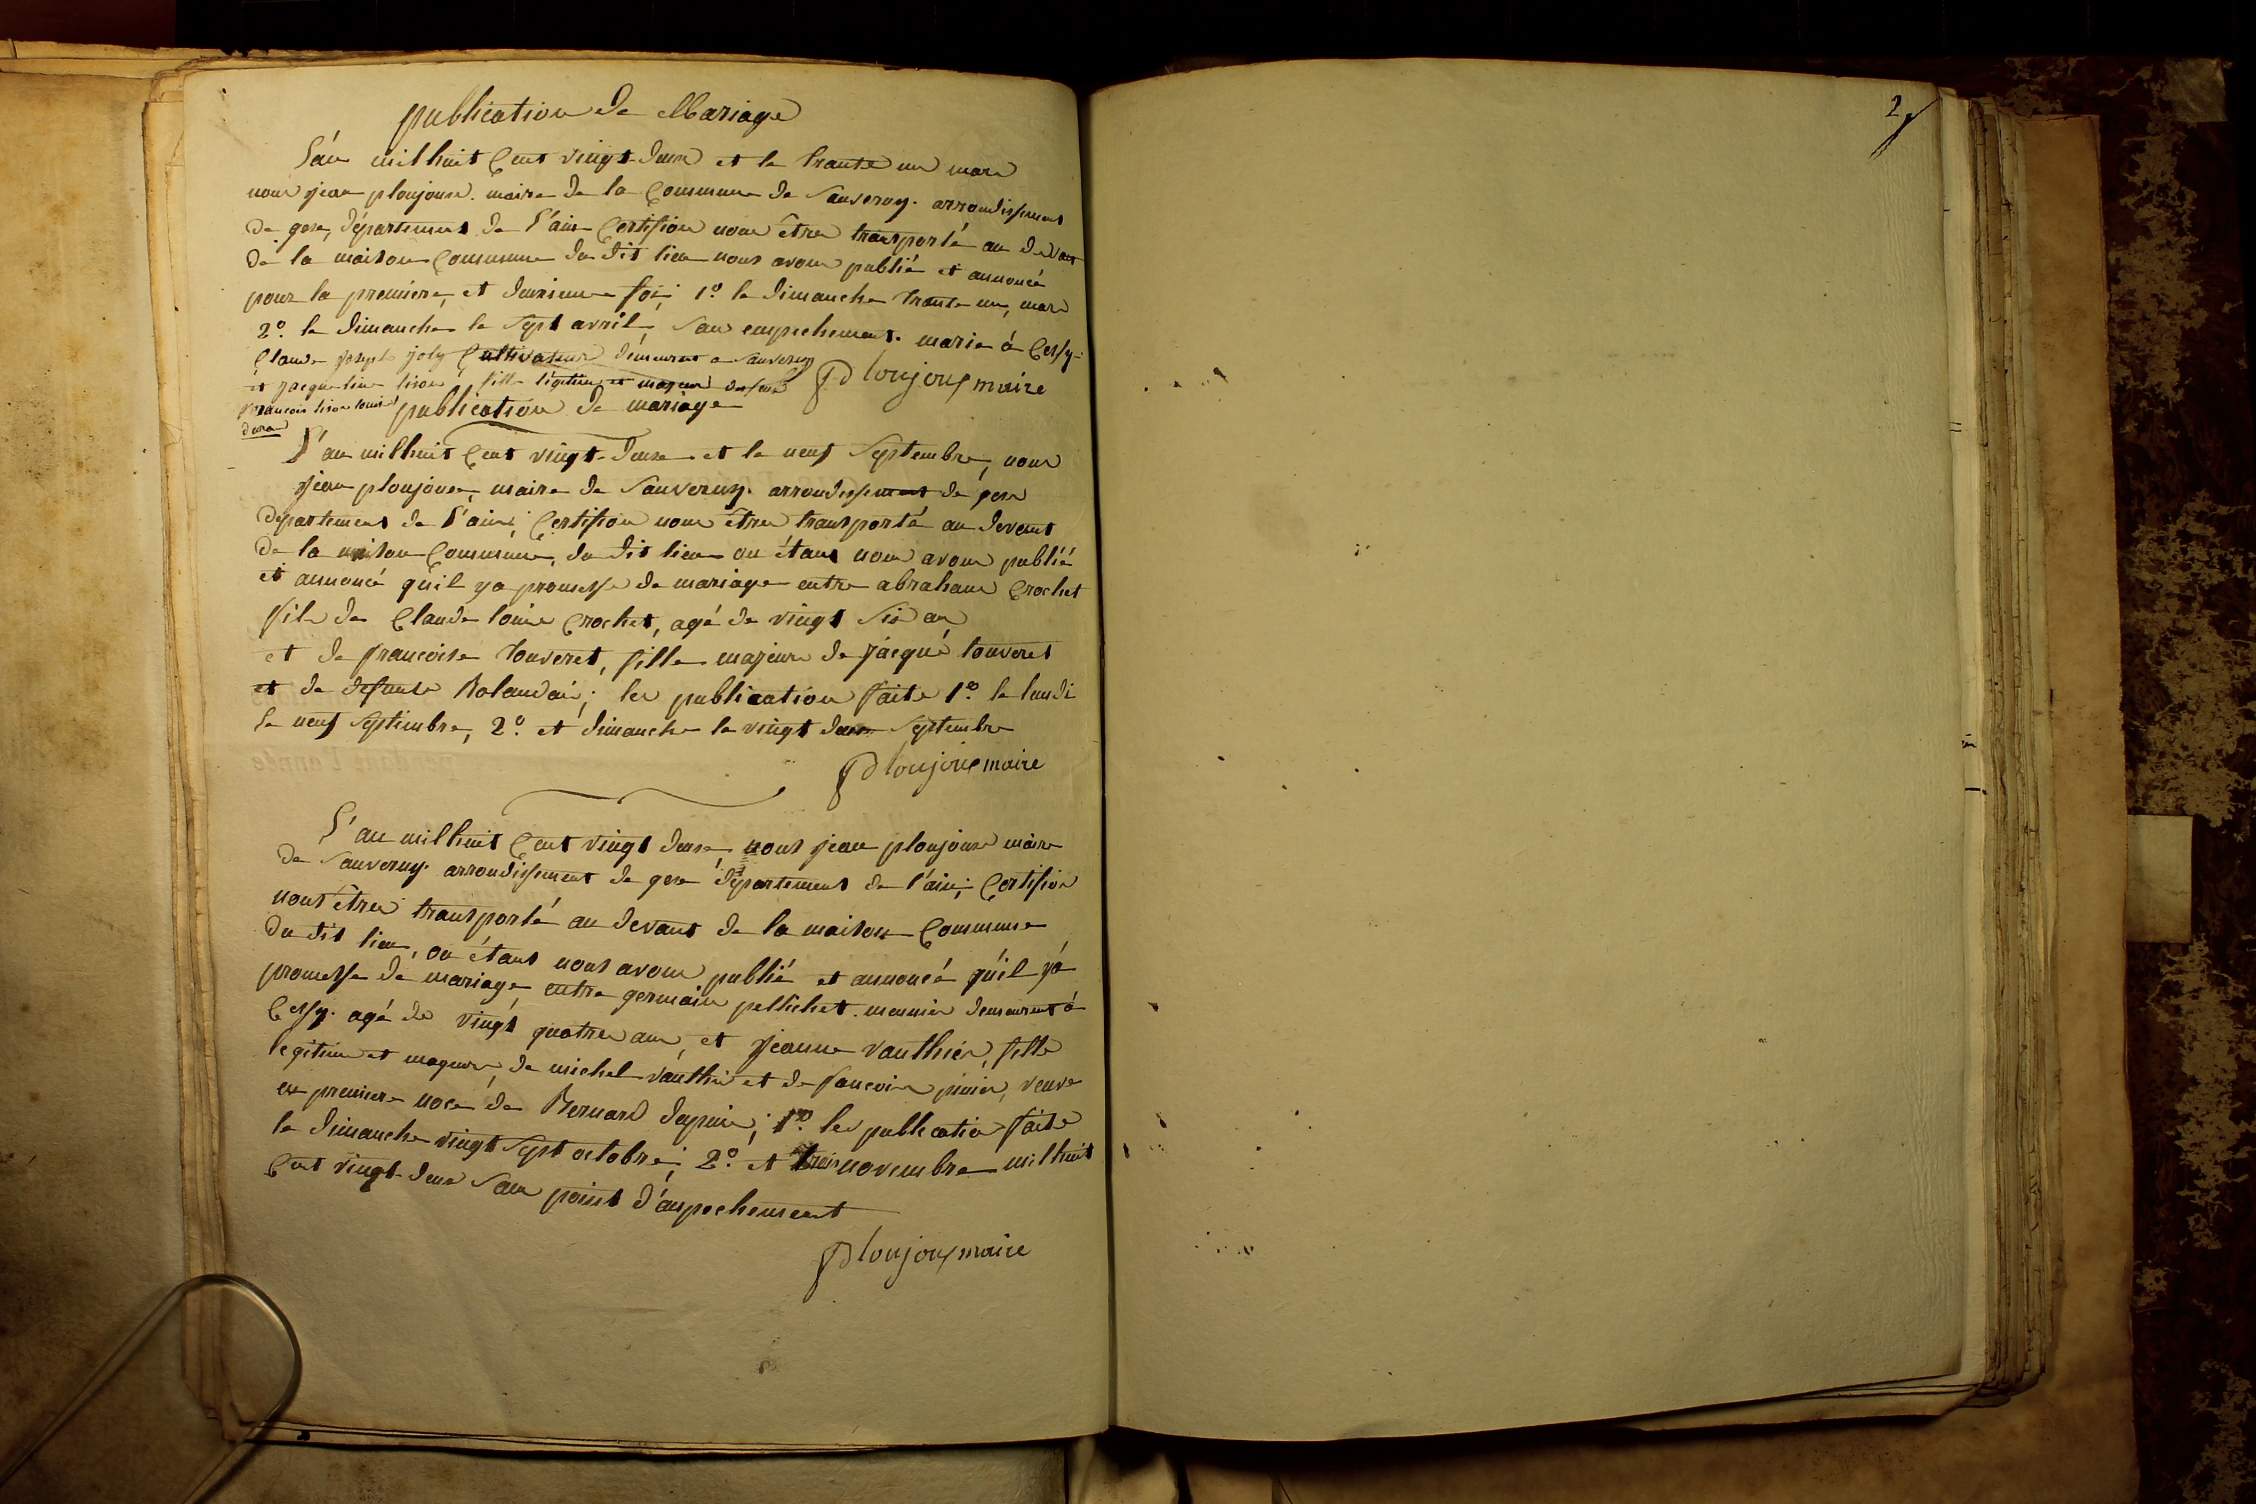 publication de Mariage
L'an mil huit Cent vingt-deux et le trante un mars
nous jean ploujoux. maire de la Commune de Sauverny. arrondissement
de gex, département de l'ain Certifions nous être transporté au devant
de la maison Commune du dit lieu nous avons publié et annoncé
pour la premiere, et deuxieme foi; 1º. le dimanche trante un, mars
2º. le dimanche le sept avril, sans empechement. marie á Cessy.
Claude joseph joly Cultivateur demeurent a Sauverny
et jacqueline lison fille légitime et majeure
françois lison louise
Ploujoux maire
publication de mariage
L'an mil huit Cent vingt-deux et le neuf Septembre, nous
jean ploujoux, maire de Sauverny. arrondissement de gex
département de l'ain; Certifions nous être transporté au devant
de la maison Commune, du dit lieu ou étant nous avons publié
et annoncé qu'il ya promesse de mariage entre abraham Crochet
fils de Claude louis Crochet, agé de vingt six ans
et de françoise touveret, fille majeure de jacque touveret
et de defunte Rolandai; les publication faite 1º. le lundi
le neuf septembre, 2º. et dimanche le vingt deux septembre
Ploujoux maire
L'an mil huit Cent vingt deux, nous jean ploujoux maire
de Sauverny. arrondissement de gex département de l'ain; Certifions
nous être transporté au devant de la maison Commune
du dit lieu, ou étant nous avons publié et annoncé qu'il ya
promesse de mariage entre germain pellichet. meunier demeurent á
Cessy. agé de vingt quatre ans, et jeanne vauthier, fille
legitime et mageure, de michel vauthi et de fancoise veuve
en premiere noce de Bernard dupuis; 1º. les publication faite
le dimanche vingt sept octobre; 2º. et trois novembre mil huit
Cent vingt-deux sans point d'anpechement
Ploujoux maire
2